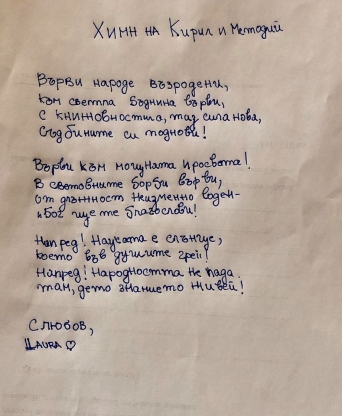 Химн на Кирил и Методий
Върви народе възродени,
към светла бъднина върви,
с книжовността, таз сила нова,
съдбините си поднови!
Върви към мощната просвета!
В световните борби върви,
от длъжност неизменно воден -
и Бог ще те благослови!
Напред! Науката е слънце,
което във душите грей!
Напред! Народността не пада
там, дето знанието живей!
С любов,
Laura ♡